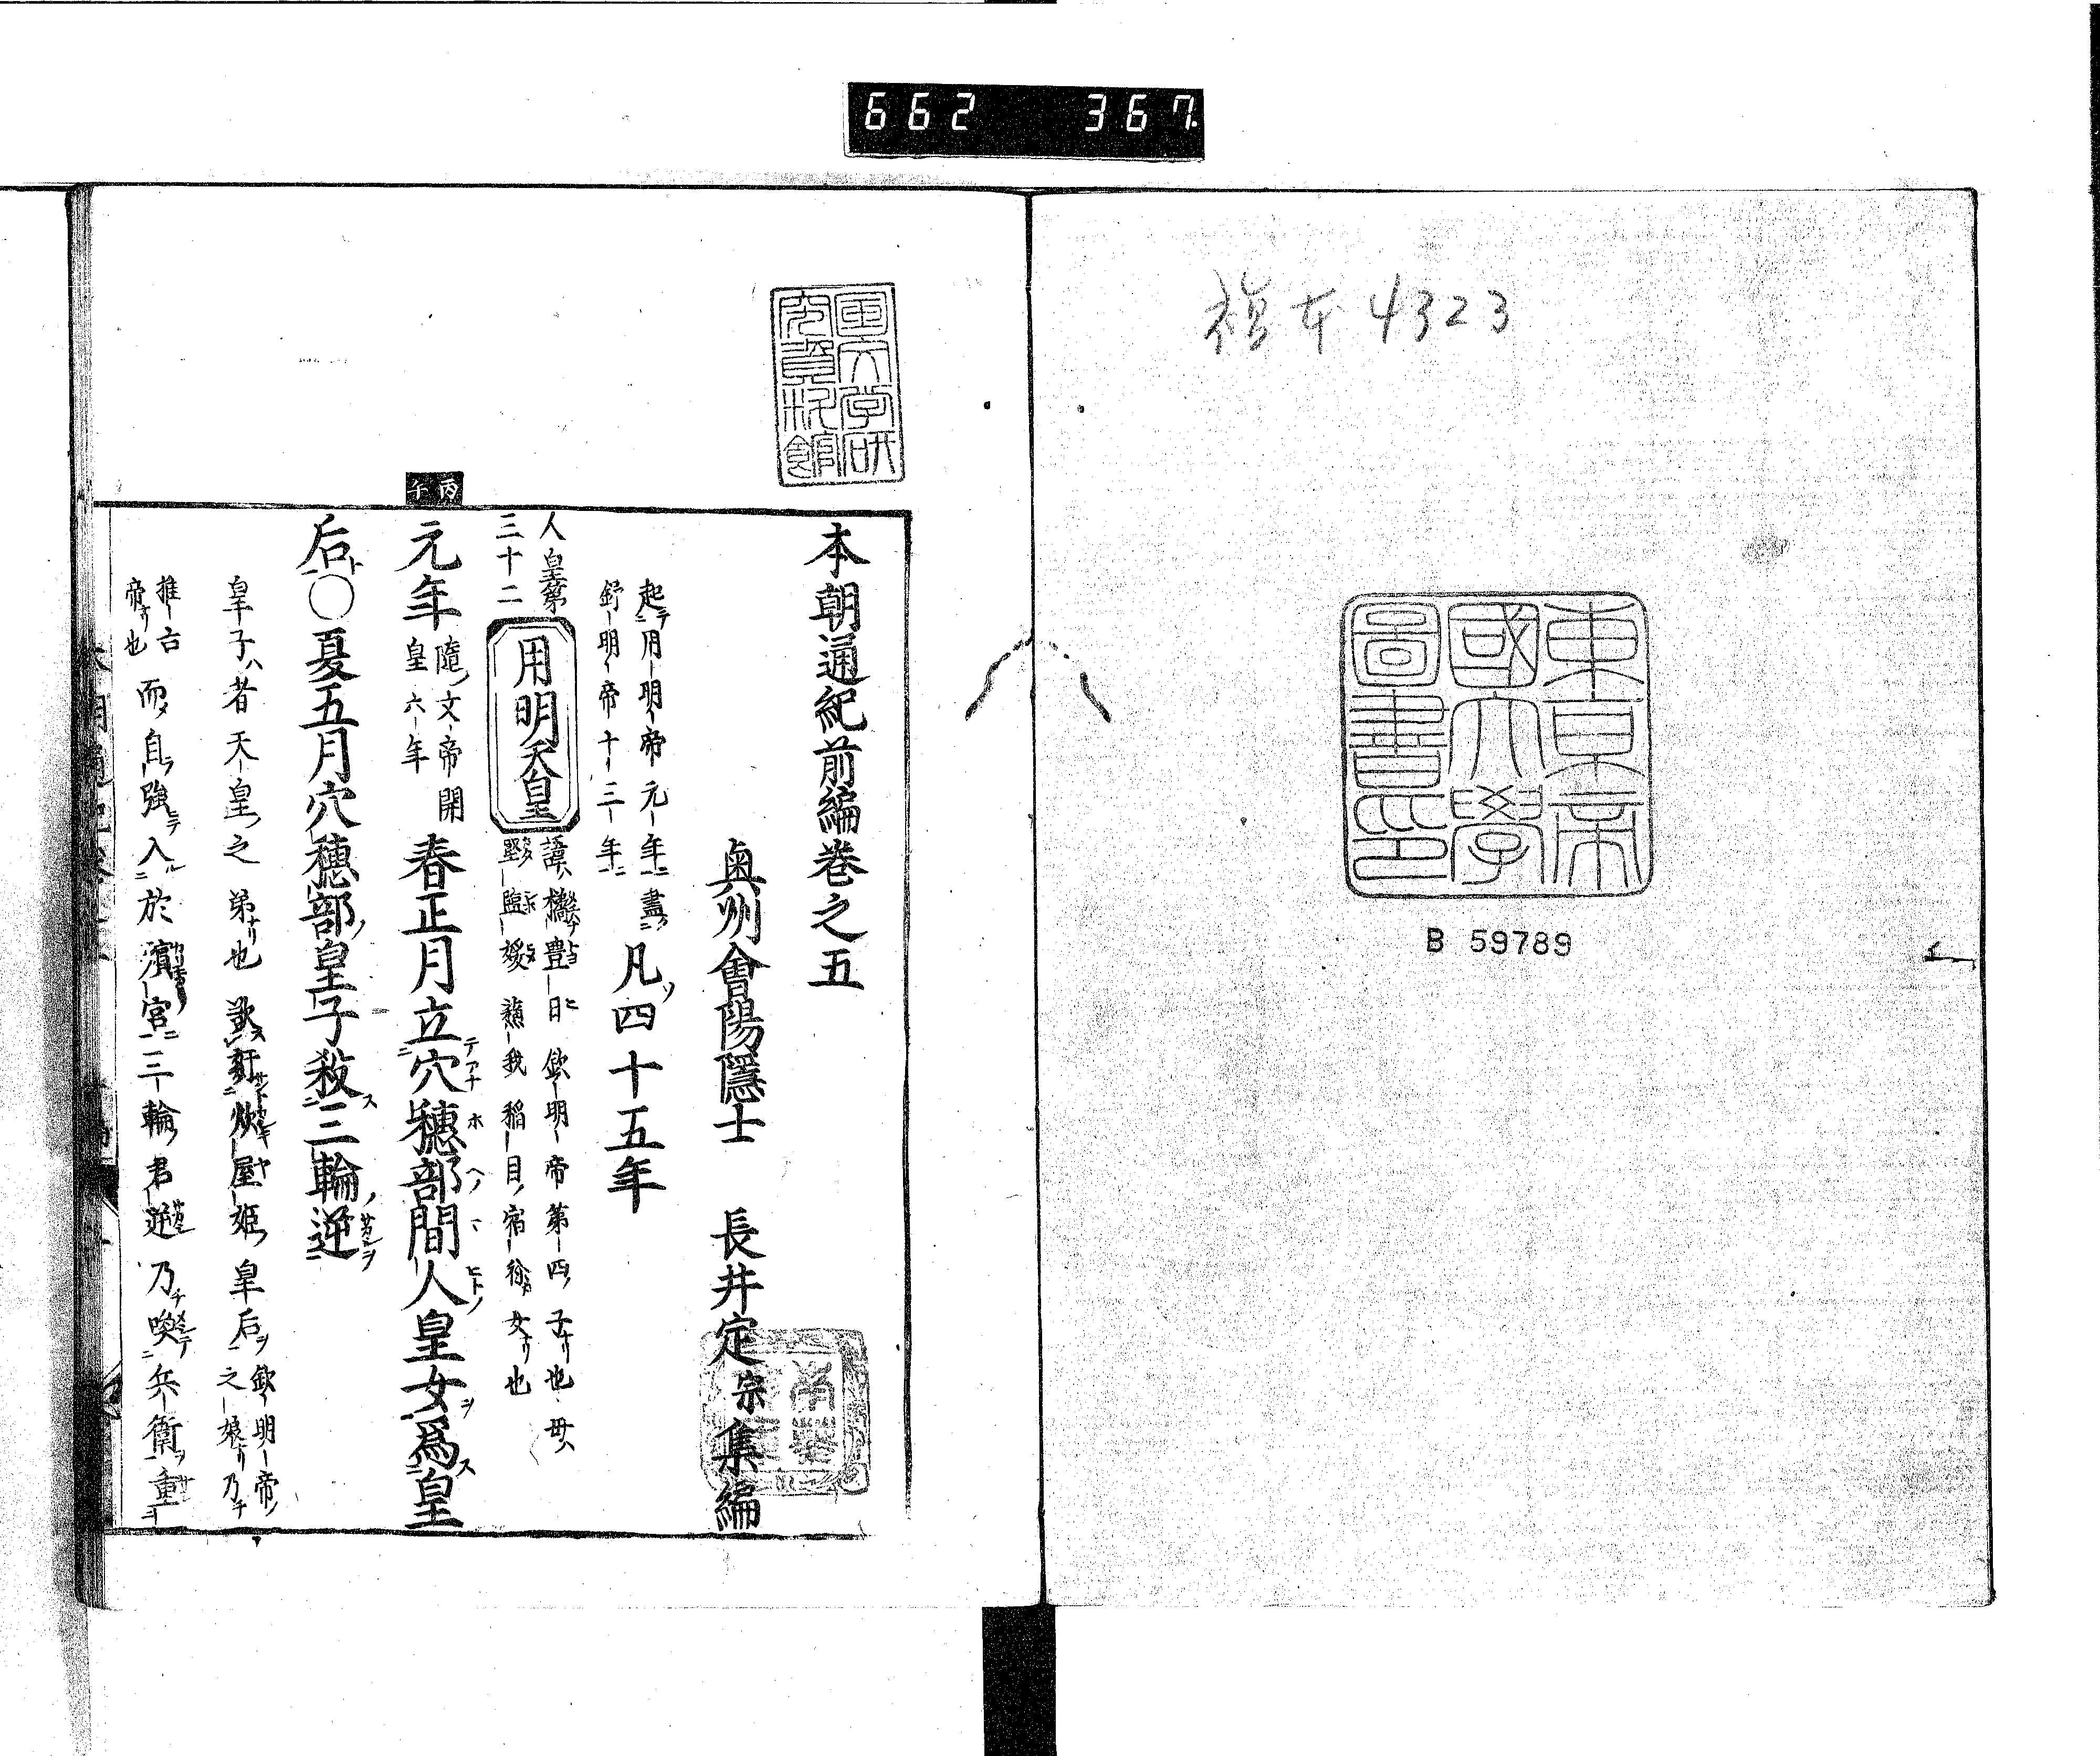 662 367
複本4323
東京帝
國大學
圖書印
B 59789
国文学研
究資料館
本朝通紀前編巻之五
奥州會陽隱士 長井定宗集編
起用明帝元年盡
舒明帝十三年
凡四十五年
人皇第
三十二
用明天皇
諱橘豊日欽明帝第四子也母ハ
堅鹽媛蘇我稲目宿祢女也
丙午
元年
隨文帝開
皇六年
春正月立穴穗部間人皇女爲皇
后○夏五月穴穗部皇子殺三輪逆
皇子者天皇之弟也欲姧炊屋姫皇后
欽明帝
之娘乃
推古
帝也
而自強入於濱宮三輪君逆乃喚兵衞重